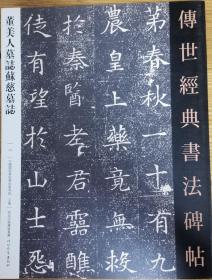 傳世經典書法碑帖
第春秋一十有九
農皇上藥竟無救
於秦醫老君靈醮
徒有望於山士怨
董美人墓誌蘇慈墓誌